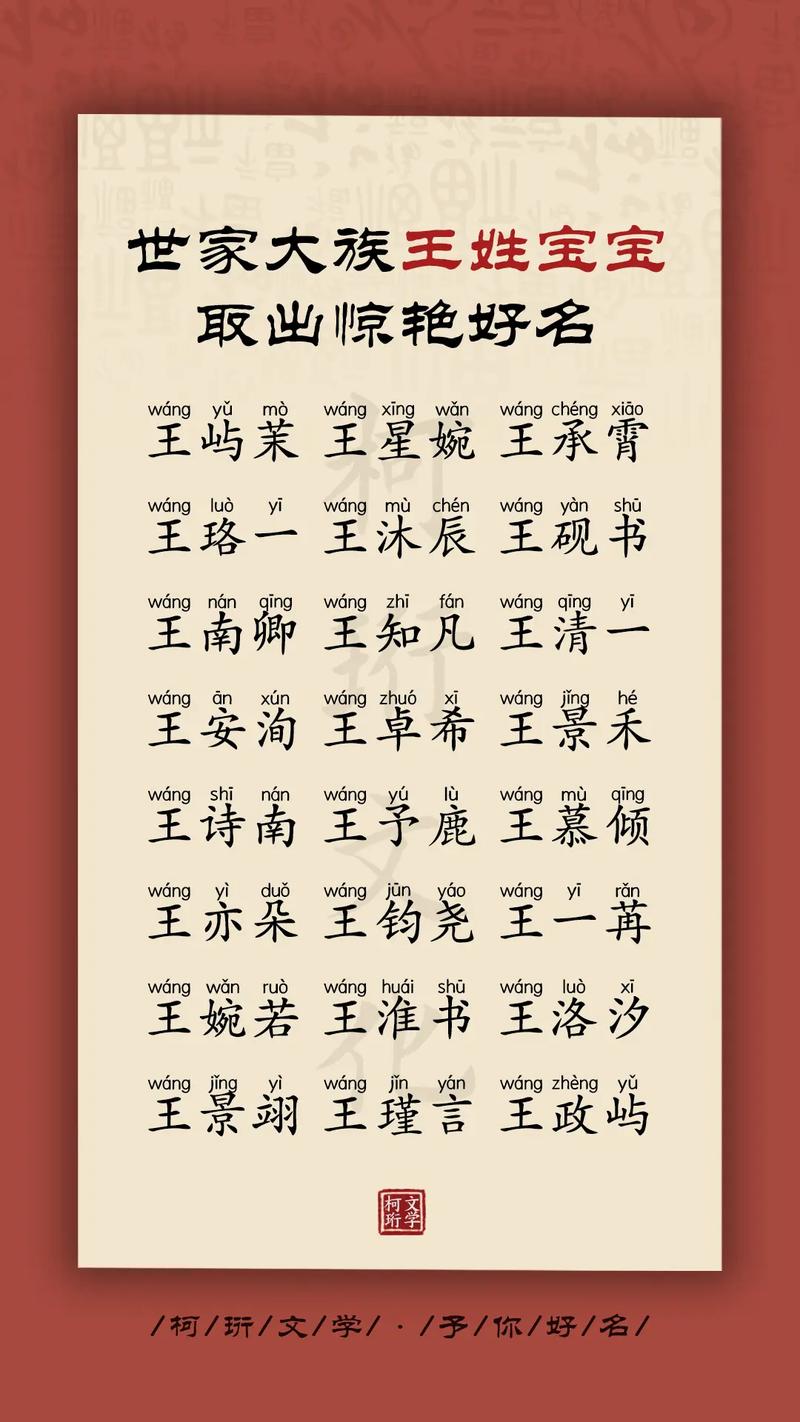 世家大族王姓宝宝
取出惊艳好名
wáng yǔ mò wáng xīng wǎn wáng chéng xiāo
王屿茉 王星婉 王承霄
wáng luò yī wáng mù chén wáng yàn shū
王珞一 王沐辰 王砚书
wáng nán qīng wáng zhī fán wáng qīng yī
王南卿 王知凡 王清一
wáng ān xún wáng zhuó xī wáng jǐng hé
王安洵 王卓希 王景禾
wáng shī nán wáng yú lù wáng mù qīng
王诗南 王予鹿 王慕倾
wáng yì duǒ wáng jūn yáo wáng yī rǎn
王亦朵 王钧尧 王一苒
wáng wǎn ruò wáng huái shū wáng luò xī
王婉若 王淮书 王洛汐
wáng jǐng yì wáng jǐn yán wáng zhèng yǔ
王景翊 王瑾言 王政屿
柯珩文化
柯珩文学
/柯/珩/文/学/·/予/你/好/名/